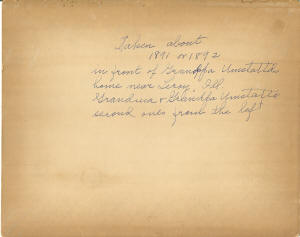 Taken about
1891 or 1892
in front of Grandpa Umstattd
home near Leroy, Ill.
Grandma & Grandpa Umstattd
second ones from the left